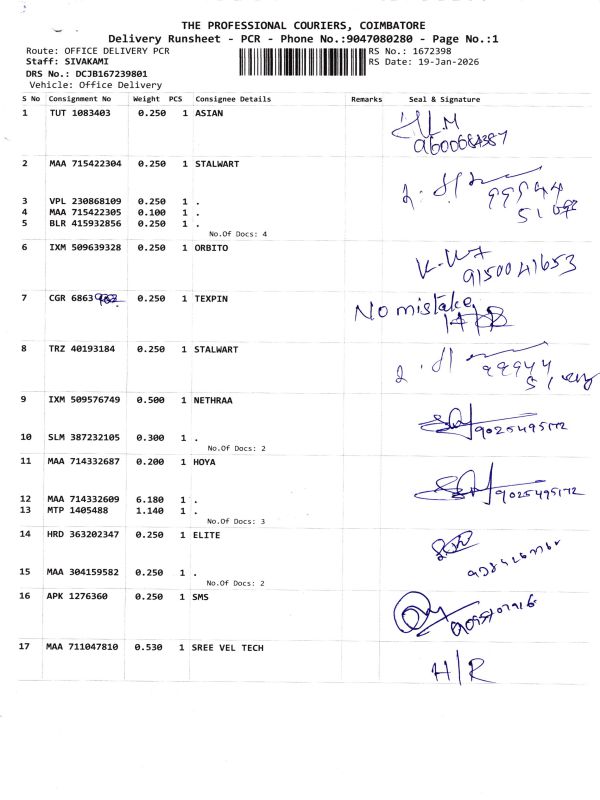 THE PROFESSIONAL COURIERS, COIMBATORE
Delivery Runsheet - PCR - Phone No.:9047080280 - Page No.:1
Route: OFFICE DELIVERY PCR RS No.: 1672398
Staff: SIVAKAMI RS Date: 19-Jan-2026
DRS No.: DCJB167239801
Vehicle: Office Delivery
S No Consignment No Weight PCS Consignee Details Remarks Seal & Signature
1 TUT 1083403 0.250 1 ASIAN
9600684387
2 MAA 715422304 0.250 1 STALWART
99944
3 VPL 230868109 0.250 1 .
4 MAA 715422305 0.100 1 .
5 BLR 415932856 0.250 1 .
No.Of Docs: 4
6 IXM 509639328 0.250 1 ORBITO
9150041653
7 CGR 6863 0.250 1 TEXPIN
No mistake
8 TRZ 40193184 0.250 1 STALWART
99944
9 IXM 509576749 0.500 1 NETHRAA
9025495172
10 SLM 387232105 0.300 1 .
No.Of Docs: 2
11 MAA 714332687 0.200 1 HOYA
9025495172
12 MAA 714332609 6.180 1 .
13 MTP 1405488 1.140 1 .
No.Of Docs: 3
14 HRD 363202347 0.250 1 ELITE
15 MAA 304159582 0.250 1 .
No.Of Docs: 2
16 APK 1276360 0.250 1 SMS
17 MAA 711047810 0.530 1 SREE VEL TECH
H/R